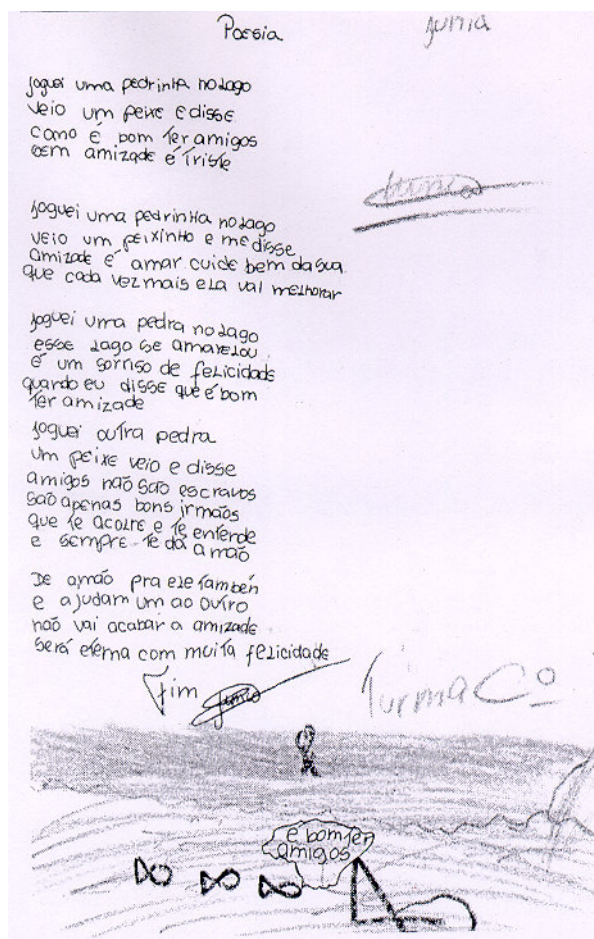 Poesia
Junia
Joguei uma pedrinha no lago
veio um peixe e disse
como é bom ter amigos
sem amizade é triste
Joguei uma pedrinha no lago
veio um peixinho e me disse
amizade é amar. cuide bem da sua.
que cada vez mais ela vai melhorar
Joguei uma pedra no lago
esse lago se amarelou
é um sorriso de felicidade
quando eu disse que é bom
ter amizade
Joguei outra pedra
um peixe veio e disse
amigos não são escravos
são apenas bons irmãos
que te acolhe e te entende
e sempre te dá a mão
De a mão pra ele tambén
e ajudam um ao outro
não vai acabar a amizade
será eterna com muita felicidade
Fim
Turma C
é bom ter
amigos